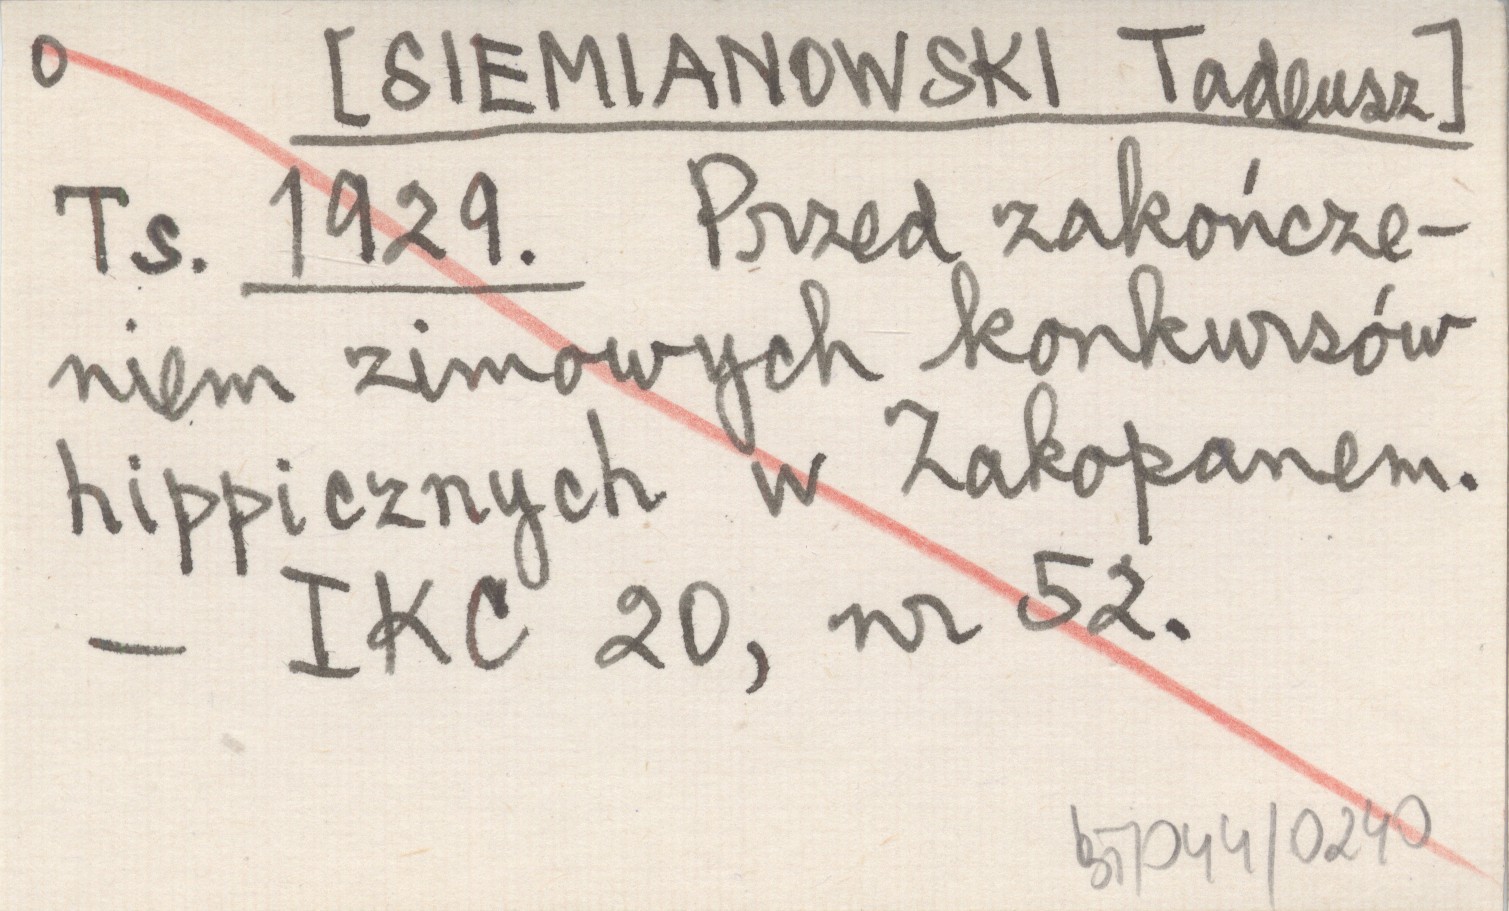 o [SIEMIANOWSKI Tadeusz]
Ts. 1929. Przed zakończe-
niem zimowych konkursów
hippicznych w Zakopanem.
— IKC 20, nr 52.
/044/0240